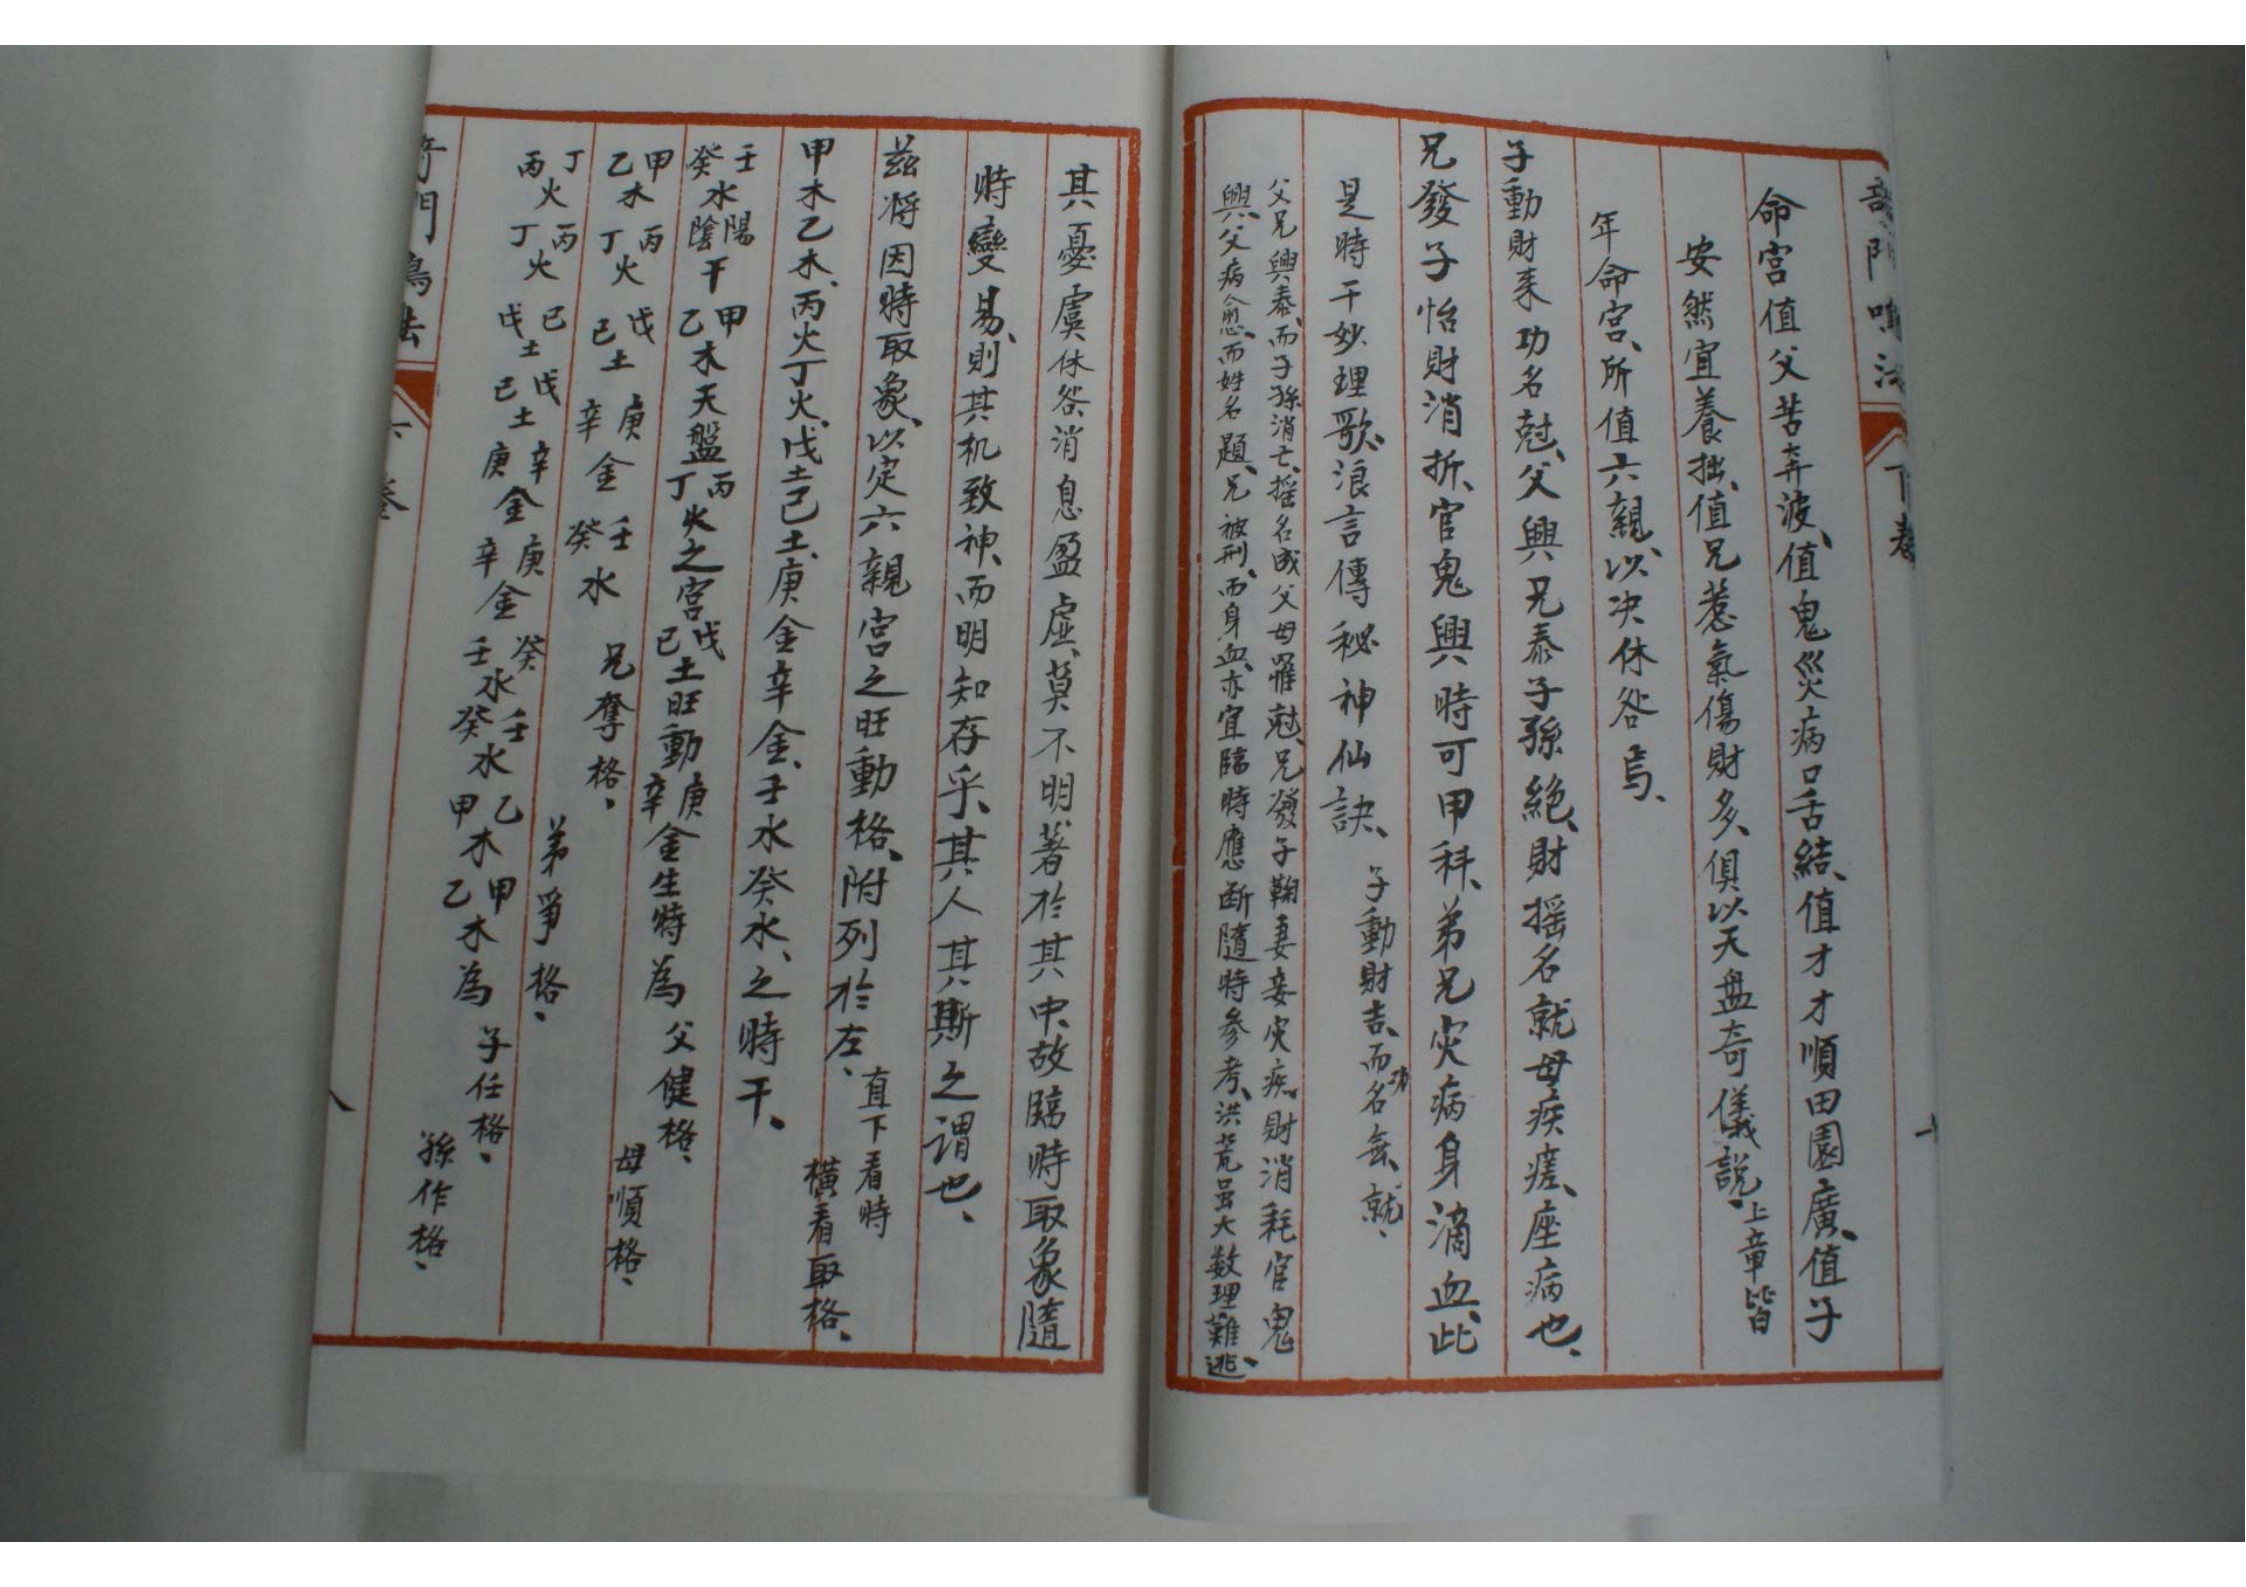 命宮值父苦奔波、值鬼災病口舌結、值才才順田園廣、值子
安然宜養拙、值兄惹氣傷財多、俱以天盤奇儀說、上章皆
年命宮、所值六親、以决休咎焉、
子動財来功名尅、父興兄泰子孫絕、財摇名就母疾瘥、座病也、
兄發子怡財消折、官鬼興時可甲科、弟兄灾病身滴血、此
是時干妙理歌、浪言傳秘神仙訣、 子動財吉、而功名無就、
父兄興泰、而子孫消亡、摇名成父母罹尅、兄發子鞠妻妾灾疾、財消耗官鬼
興、父病愈、而姓名題、兄被刑、而身血、亦宜臨時應断隨時參考、洪荒虽大数理難逃、
下卷
其憂虞休咎消息盈虛、莫不明著於其中、故臨時取象隨
時變易、則其机致神、而明知存乎、其人其斯之謂也、
茲将因時取象、以定六親宮之旺動格、附列於左、 直下看時
橫看取格、
甲木乙木、丙火丁火、戊土己土、庚金辛金、壬水癸水、之時干、
壬癸水陽陰干甲乙木天盤丙丁火之宮戊己土旺動庚辛金生時為 父健格、 母順格、
甲乙木 丙丁火 戊己土 庚辛金 壬癸水 兄奪格、 弟爭格、
丁丙火 丙丁火 己戊土 戊己土 辛庚金 庚辛金 癸壬水 壬癸水 乙甲木 甲乙木為 子任格、 孫作格、
八